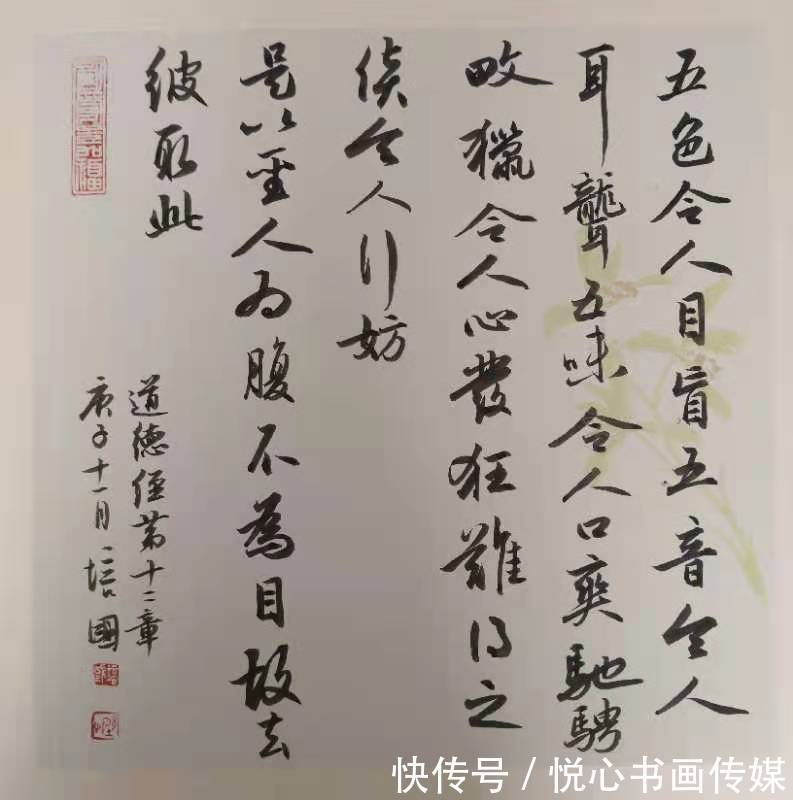 五色令人目盲五音令人
耳聾五味令人口爽馳騁
畋獵令人心發狂難得之
貨令人行妨
是以聖人為腹不為目故去
彼取此
道德經第十二章
庚子十一月培國
快传号/悦心书画传媒